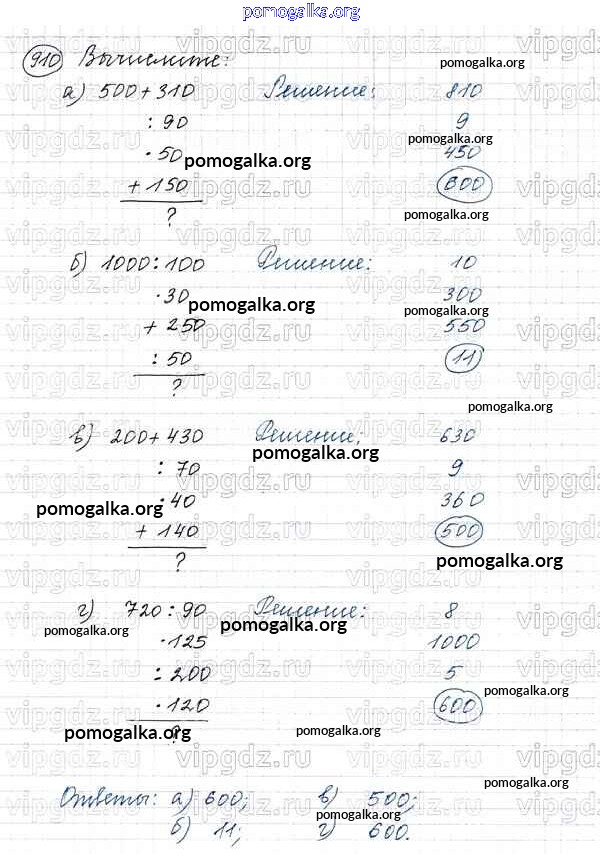 pomogalka.org
910 Вычислите:
а) 500 + 310 Решение: 810
: 90 9
· 50 450
+ 150 600
?
б) 1000 : 100 Решение: 10
· 30 300
+ 250 550
: 50 11
?
в) 200 + 430 Решение: 630
: 70 9
· 40 360
+ 140 500
?
г) 720 : 90 Решение: 8
· 125 1000
: 200 5
· 120 600
?
Ответы: а) 600; в) 500;
б) 11; г) 600.